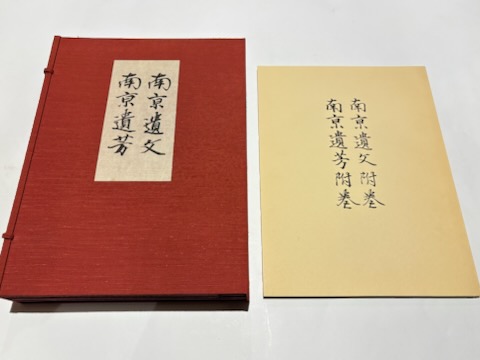 南京遺文
南京遺芳
南京遺文附巻
南京遺芳附巻